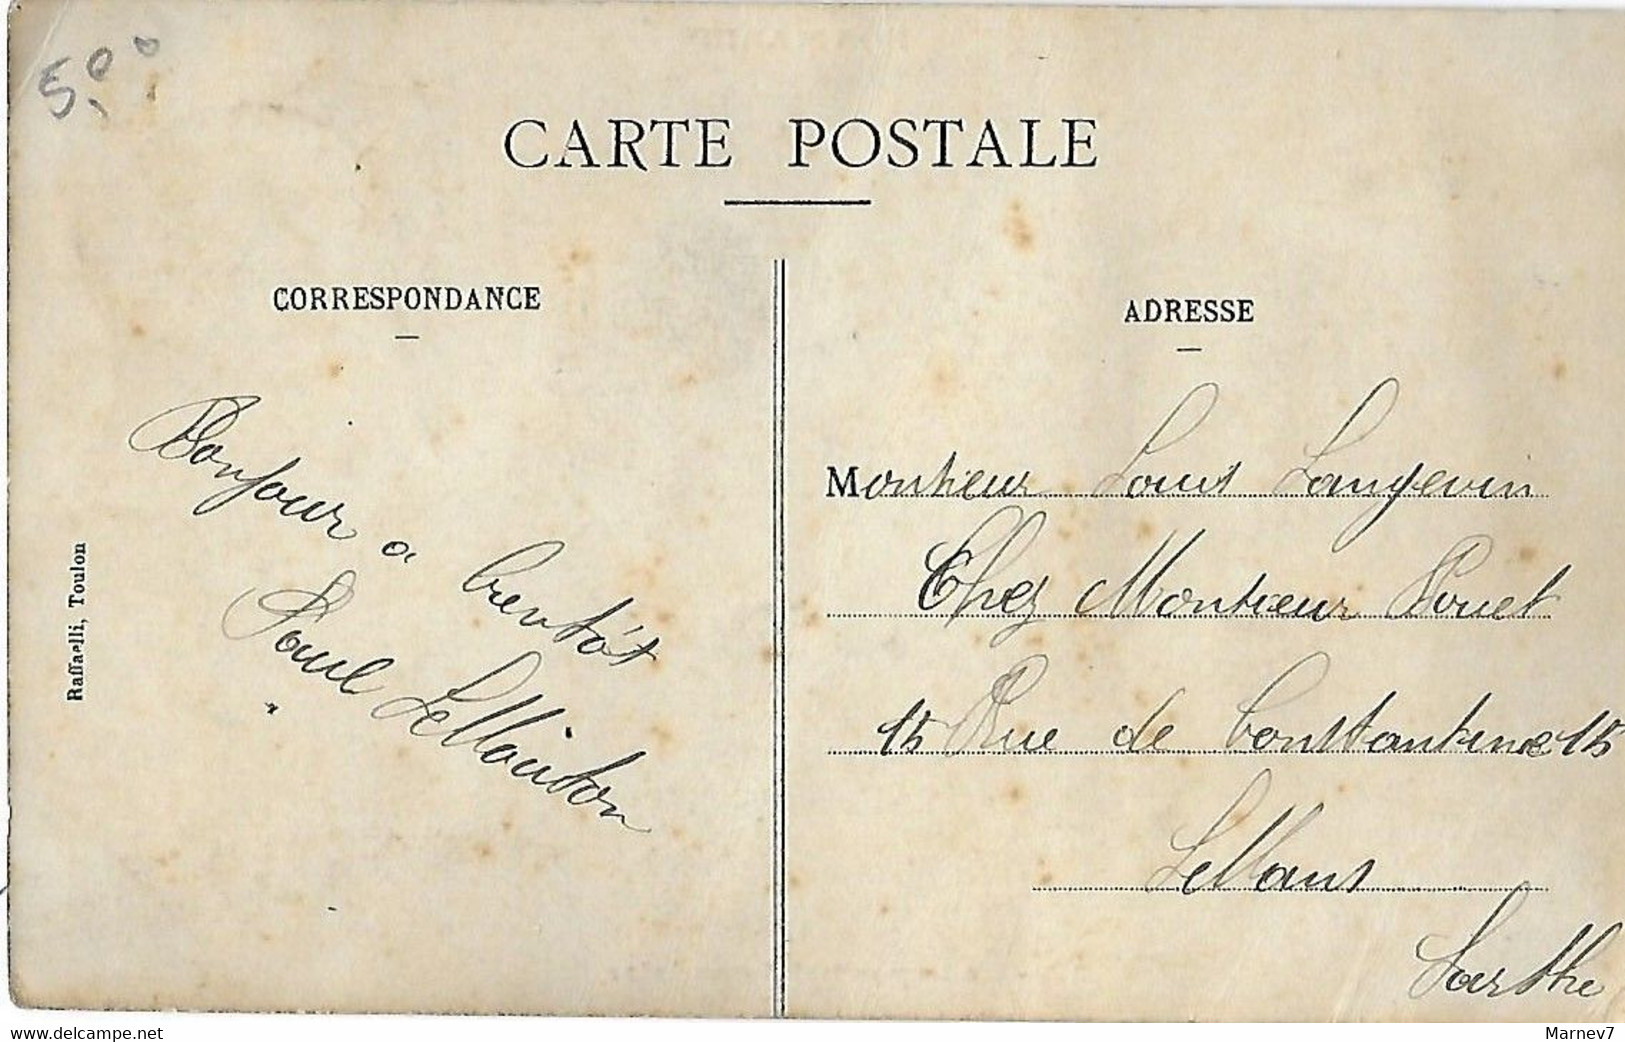 5,00
CARTE POSTALE
CORRESPONDANCE
ADRESSE
Bonjour a bientôt
Paul LeMaiton
Raffaelli, Toulon
Monsieur Louis Langevin
Chez Monsieur Pouet
15 Rue de Constantine 15
LeMans
Sarthe
www.delcampe.net
Marnev7